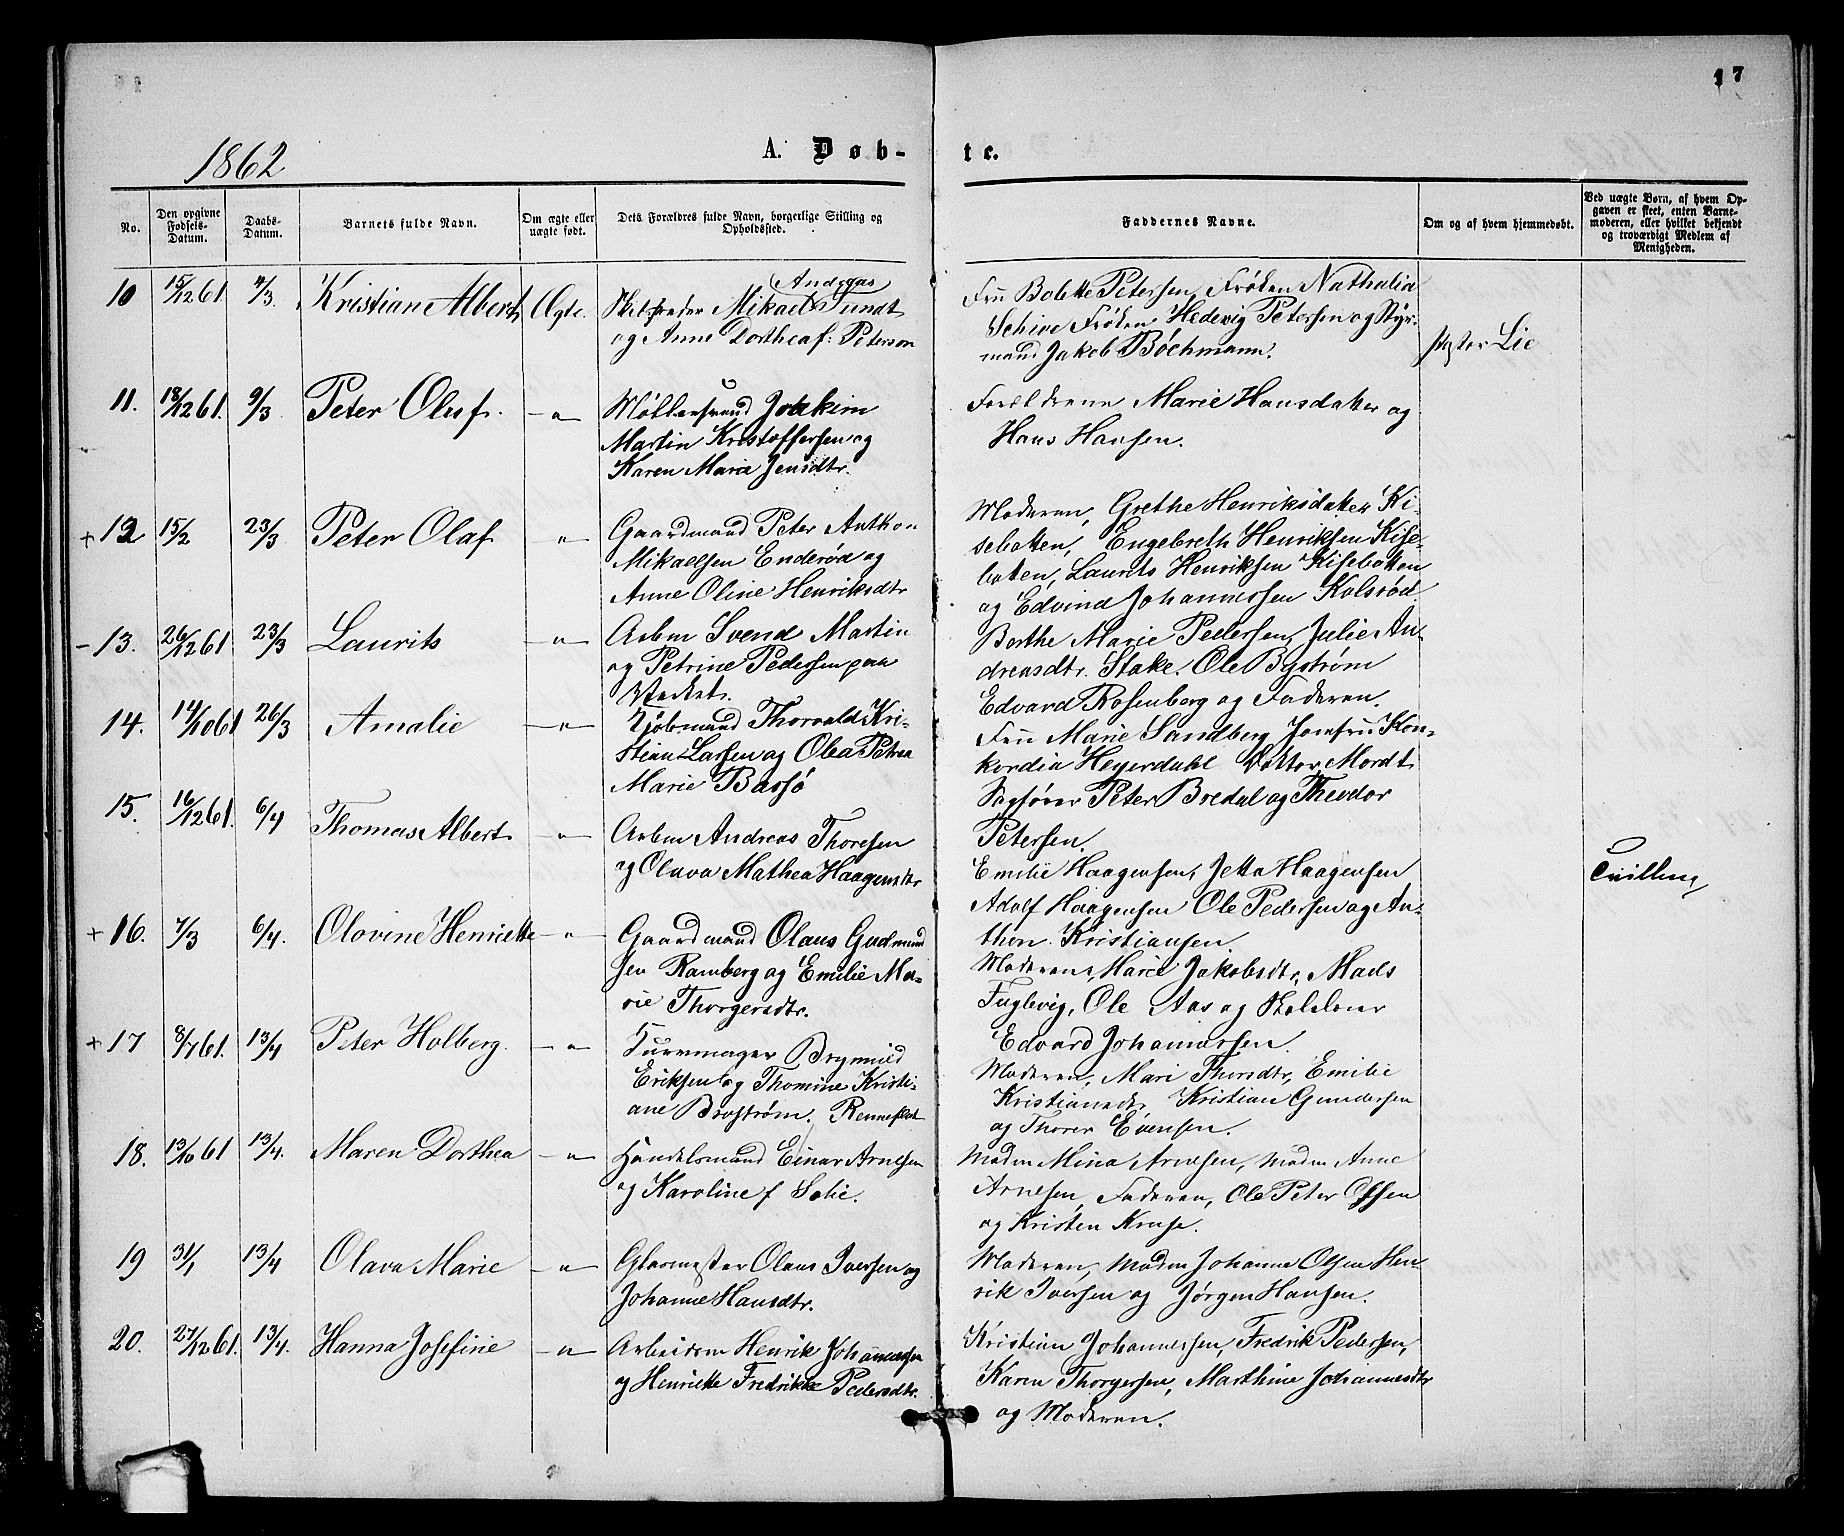 17
1862
A. Døb-
te.
No.
Den opgivne Fødsels-Datum.
Daabs-Datum.
Barnets fulde Navn.
Om ægte eller uægte født.
Dets Forældres fulde Navn, borgerlige Stilling og Opholdssted.
Faddernes Navne.
Om og af hvem hjemmedøbt.
Ved uægte Børn, af hvem Opgaven er skeet, enten Barnemoderen, eller hvilket bekjendt og troværdigt Medlem af Menigheden.
10 15/12 61 4/3. Kristian Albert Ægte.
Andreas
Mikael Tundt
og Anne Dorthea f: Peterson
Fru Bolette Petersen, Frøken Nathalia
Schive Frøken Hedevig Petersen og Styr-
mand Jakob Bøchmann.
Pastor Lie
11. 18/12 61. 9/3 Peter Oluf. -"-
Møllersvend Joakim
Martin Kristoffersen og
Karen Marie Jensdtr.
Forældrene Marie Hansdatter og
Hans Hansen.
+12 15/2 23/3 Peter Olaf "
Gaardmand Peter Anthon
Mikaelsen Enderød og
Anne Oline Henriksdtr
Moderen, Grethe Henriksdatter Ki-
sebotten, Engebreth Henriksen Kise-
botten, Laurits Henriksen Kisebotten
og Edvind Johannessen Kolsrød
-13. 26/12 61 23/3 Laurits -"-
Arbm Svend Martin
og Petrine Pedersen paa
Værket.
Berthe Marie Pedersen, Julie An-
dreasdtr. Stake. Ole Bystrøm
Edvard Rosenberg og Faderen.
14. 14/10 61 26/3 Amalie -"-
Kjøbmand Thorvald Kri-
stian Larsen og Olea Petrea
Marie Bassø
Fru Marie Sandberg Jomfru Kon-
kordia Heyerdahl Doktor Mordt
Sagfører Peter Bredal og Theodor
Petersen.
15. 16/12 61. 6/4 Thomas Albert -"-
Arbm Andreas Thoresen
og Olava Mathea Haagensdtr
Emilie Haagensen, Jetta Haagensen
Adolf Haagensen Ole Pedersen og An-
thon Kristiansen.
Tvilling
+16. 7/3 6/4. Olovine Henriette -"-
Gaardmand Olaus Gudmund
sen Ramberg og Emilie Ma-
rie Thorgersdtr.
Moderen, Marie Jakobsdtr, Mads
Fuglevig, Ole Aas og Skolelærer
Edvard Johannessen.
+17 8/7 61. 13/4 Peter Holberg. -"-
Buntmager Brynnild
Eriksen og Thomine Kristi-
ane Brostrøm.
Moderen, Mari Thorsdtr, Emilie
Kristiansdtr Kristian Gundersen
og Thorer Evensen.
18. 13/10 61 13/4. Maren Dorthea -"-
Handelsmand Einar Arnesen
og Karoline f Solie.
Madm Mina Arnesen, Madm Anne
Arnesen, Faderen, Ole Peter Olsen
og Kristen Kruse.
19 31/1 13/4 Olava Marie -"-
Glarmester Olaus Iversen og
Johanne Hansdtr.
Moderen, Madm Johanne Olsen Hen-
rik Iversen og Jørgen Hansen.
20. 27/12 61. 13/4. Hanna Josefine -"-
Arbeidsm Henrik Johannesen
og Henriette Fredrikke Pedersdtr.
Kristian Johannessen, Fredrik Pedersen,
Karen Thorgersen, Marthine Johannesdtr
og Moderen.